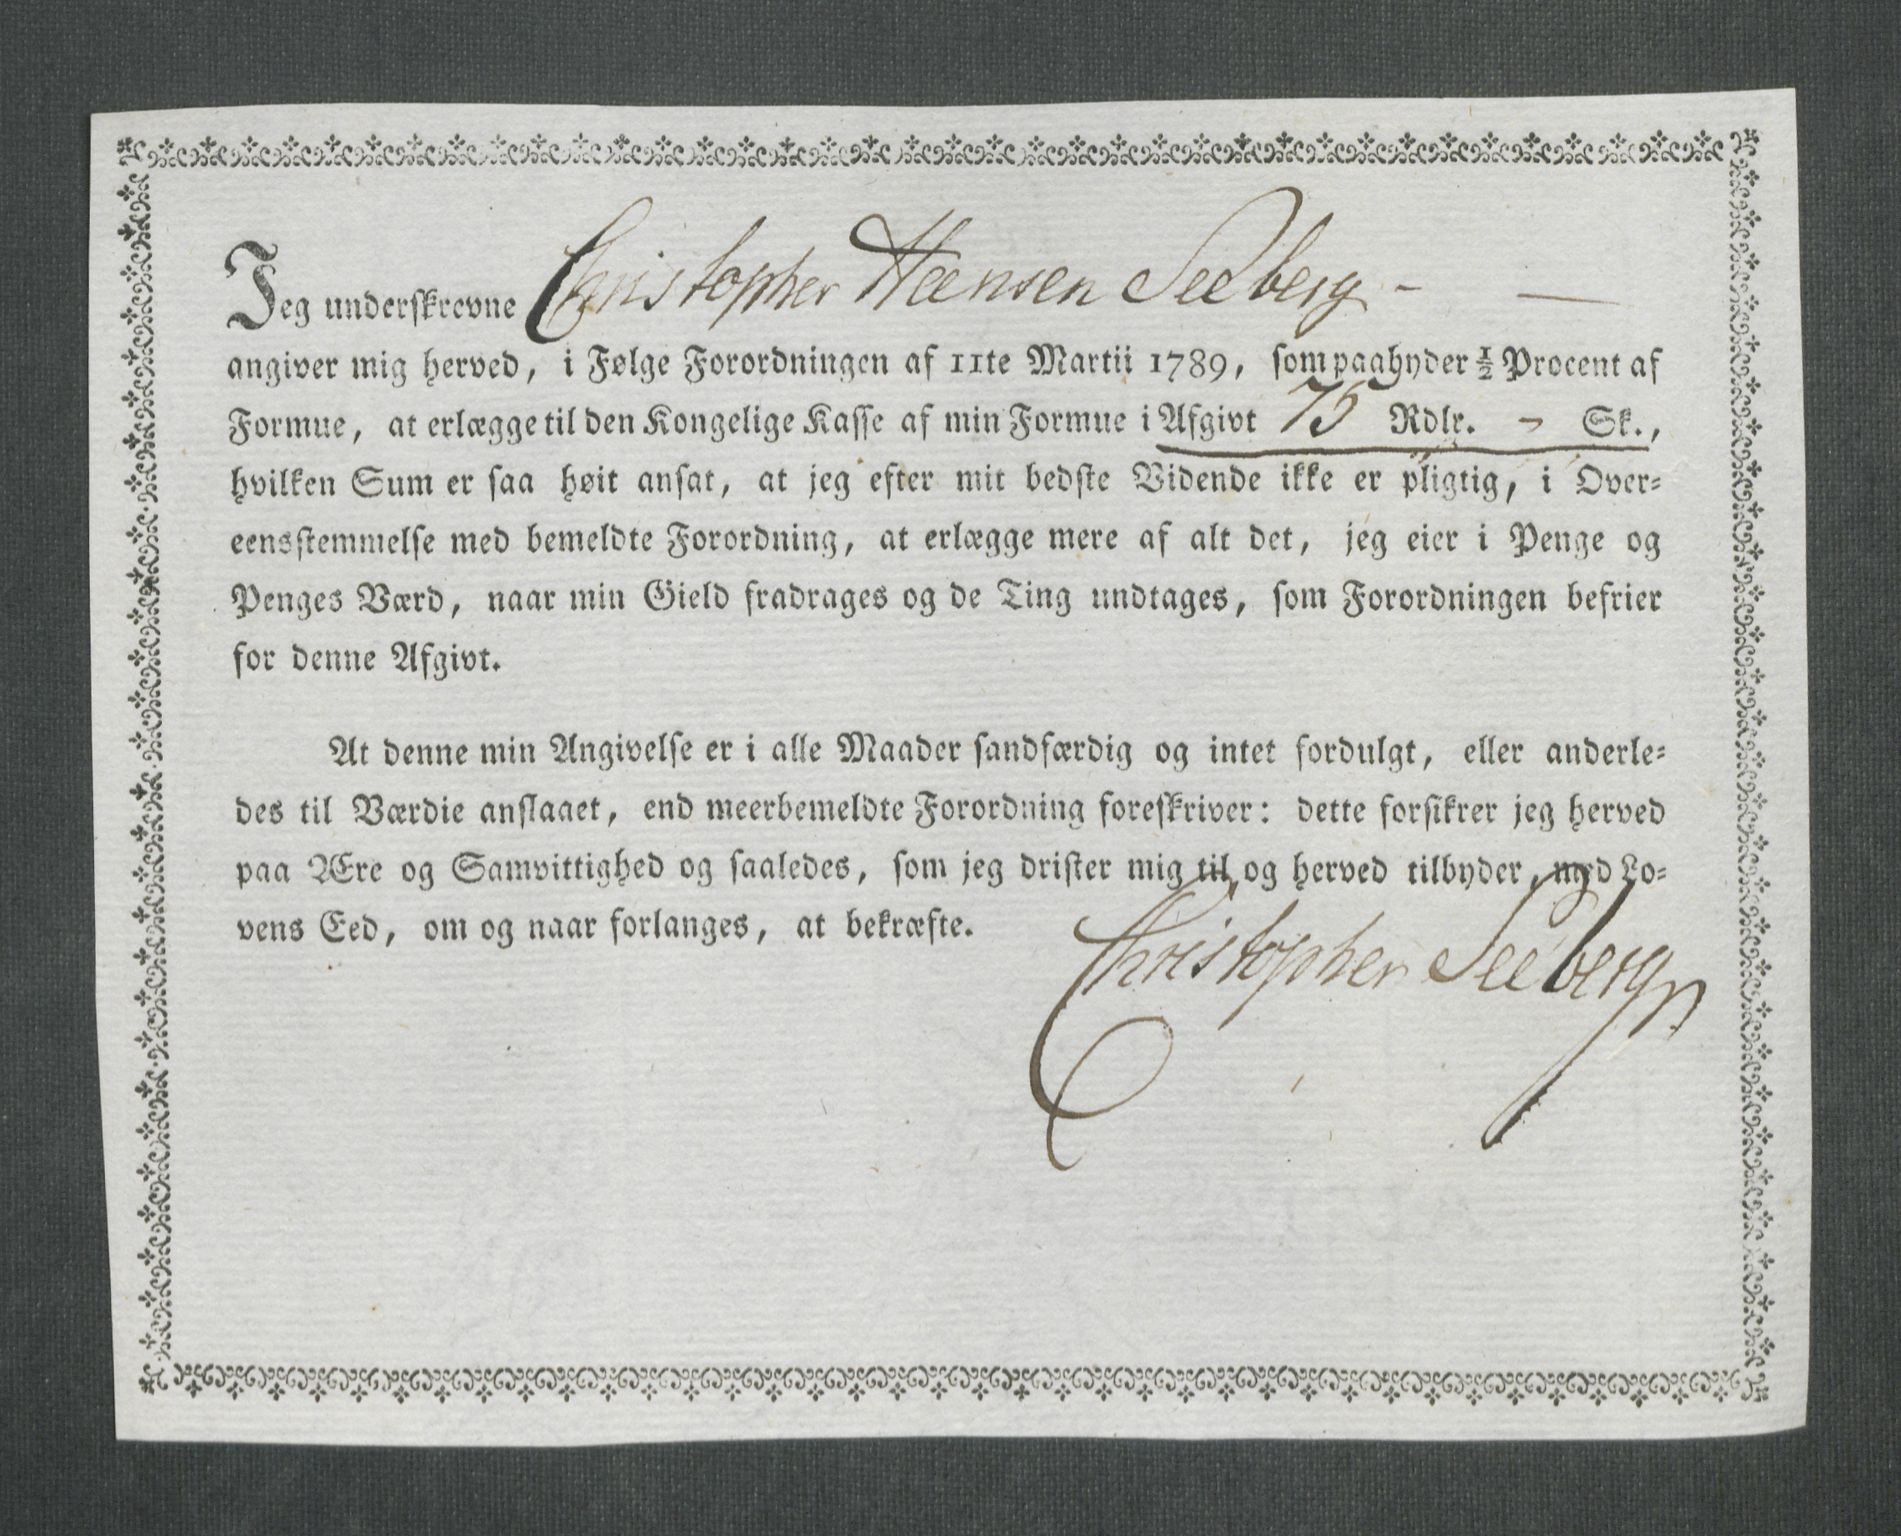 Jeg underskrevne Christopher Hansen Seeberg - —
angiver mig herved, i Følge Forordningen af 11te Martii 1789, som paabyder ½ Procent af
Formue, at erlægge til den Kongelige Kasse af min Formue i Afgivt 75 Rdlr. - Sk.,
hvilken Sum er saa høit ansat, at jeg efter mit bedste Vidende ikke er pligtig, i Over-
eensstemmelse med bemeldte Forordning, at erlægge mere af alt det, jeg eier i Penge og
Penges Værd, naar min Gield fradrages og de Ting undtages, som Forordningen befrier
for denne Afgivt.
At denne min Angivelse er i alle Maader sandfærdig og intet fordulgt, eller anderle-
des til Værdie anslaaet, end meerbemeldte Forordning foreskriver: dette forsikrer jeg herved
paa Ære og Samvittighed og saaledes, som jeg drister mig til og herved tilbyder, med Lo-
vens Eed, om og naar forlanges, at bekræfte.
Christopher Seeberg